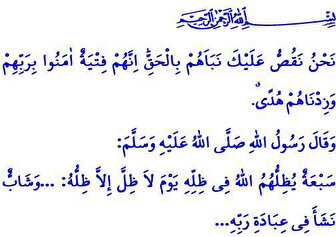 بِسْمِ اللهِ الرَّحْمٰنِ الرَّحِيمِ
نَحْنُ نَقُصُّ عَلَيْكَ نَبَاَهُمْ بِالْحَقِّۜ اِنَّهُمْ فِتْيَةٌ اٰمَنُوا بِرَبِّهِمْ
وَزِدْنَاهُمْ هُدًىۗ.
وَقَالَ رَسُولُ اللهِ صَلَّى اللهُ عَلَيْهِ وَسَلَّمَ:
سَبْعَةٌ يُظِلُّهُمُ اللهُ فِي ظِلِّهِ يَوْمَ لاَ ظِلَّ إِلاَّ ظِلُّهُ: ...وَشَابٌّ
نَشَأَ فِي عِبَادَةِ رَبِّهِ...